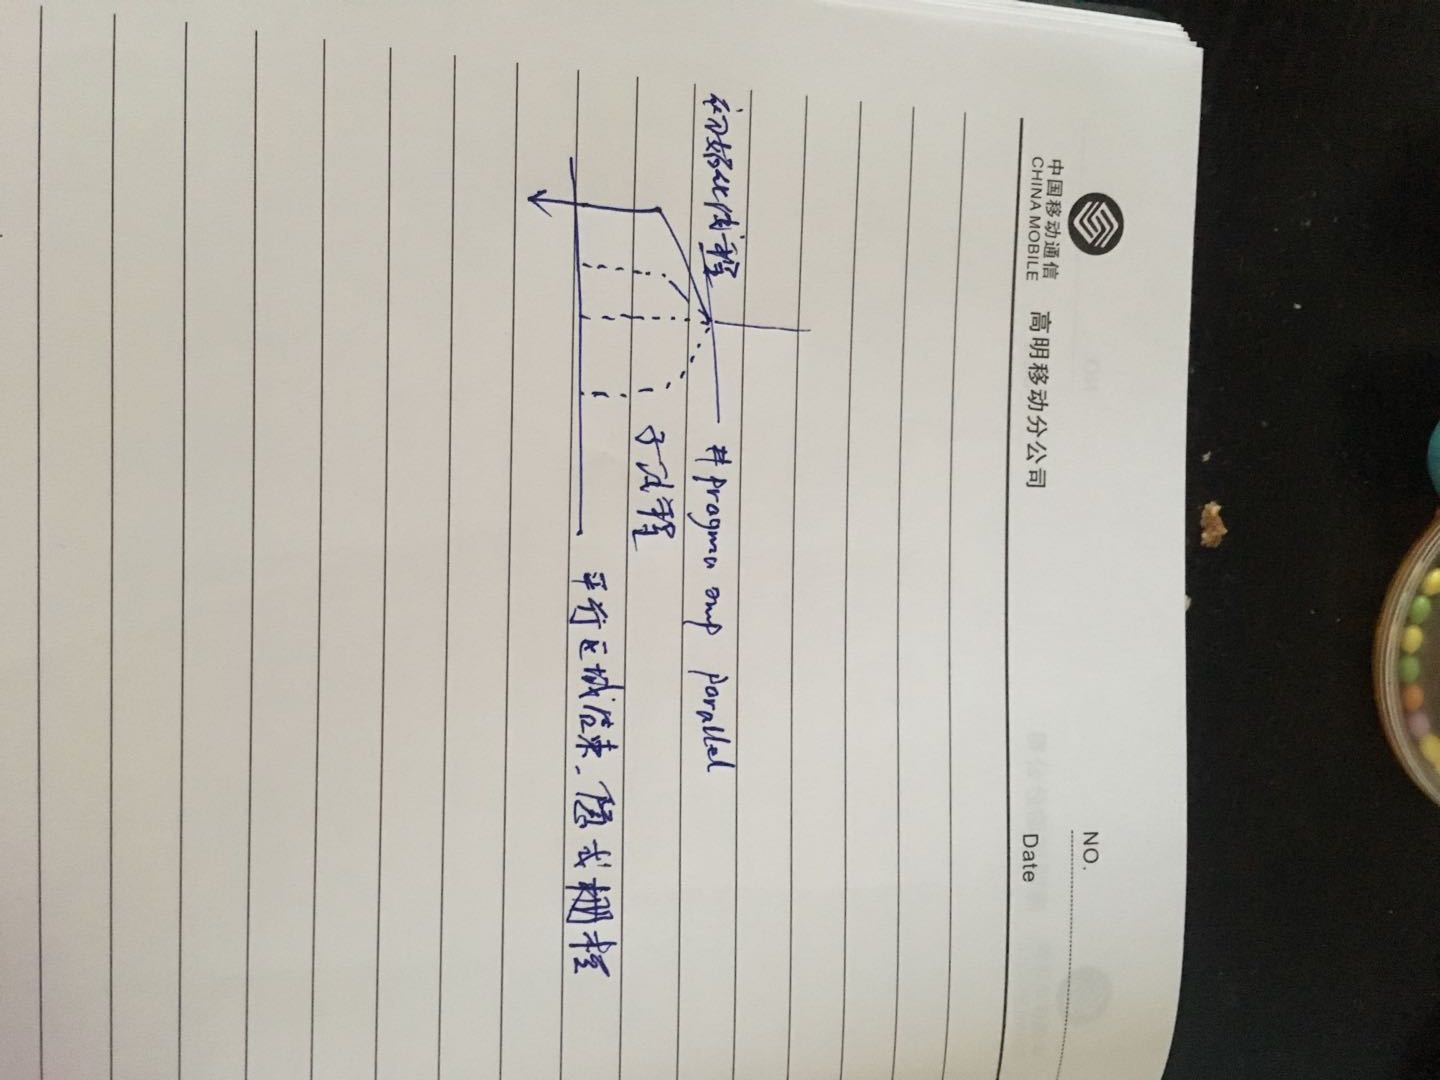 中国移动通信
CHINA MOBILE
高明移动分公司
NO.
Date
# pragma omp parallel
子线程
平行区域结束、隐式栅栏